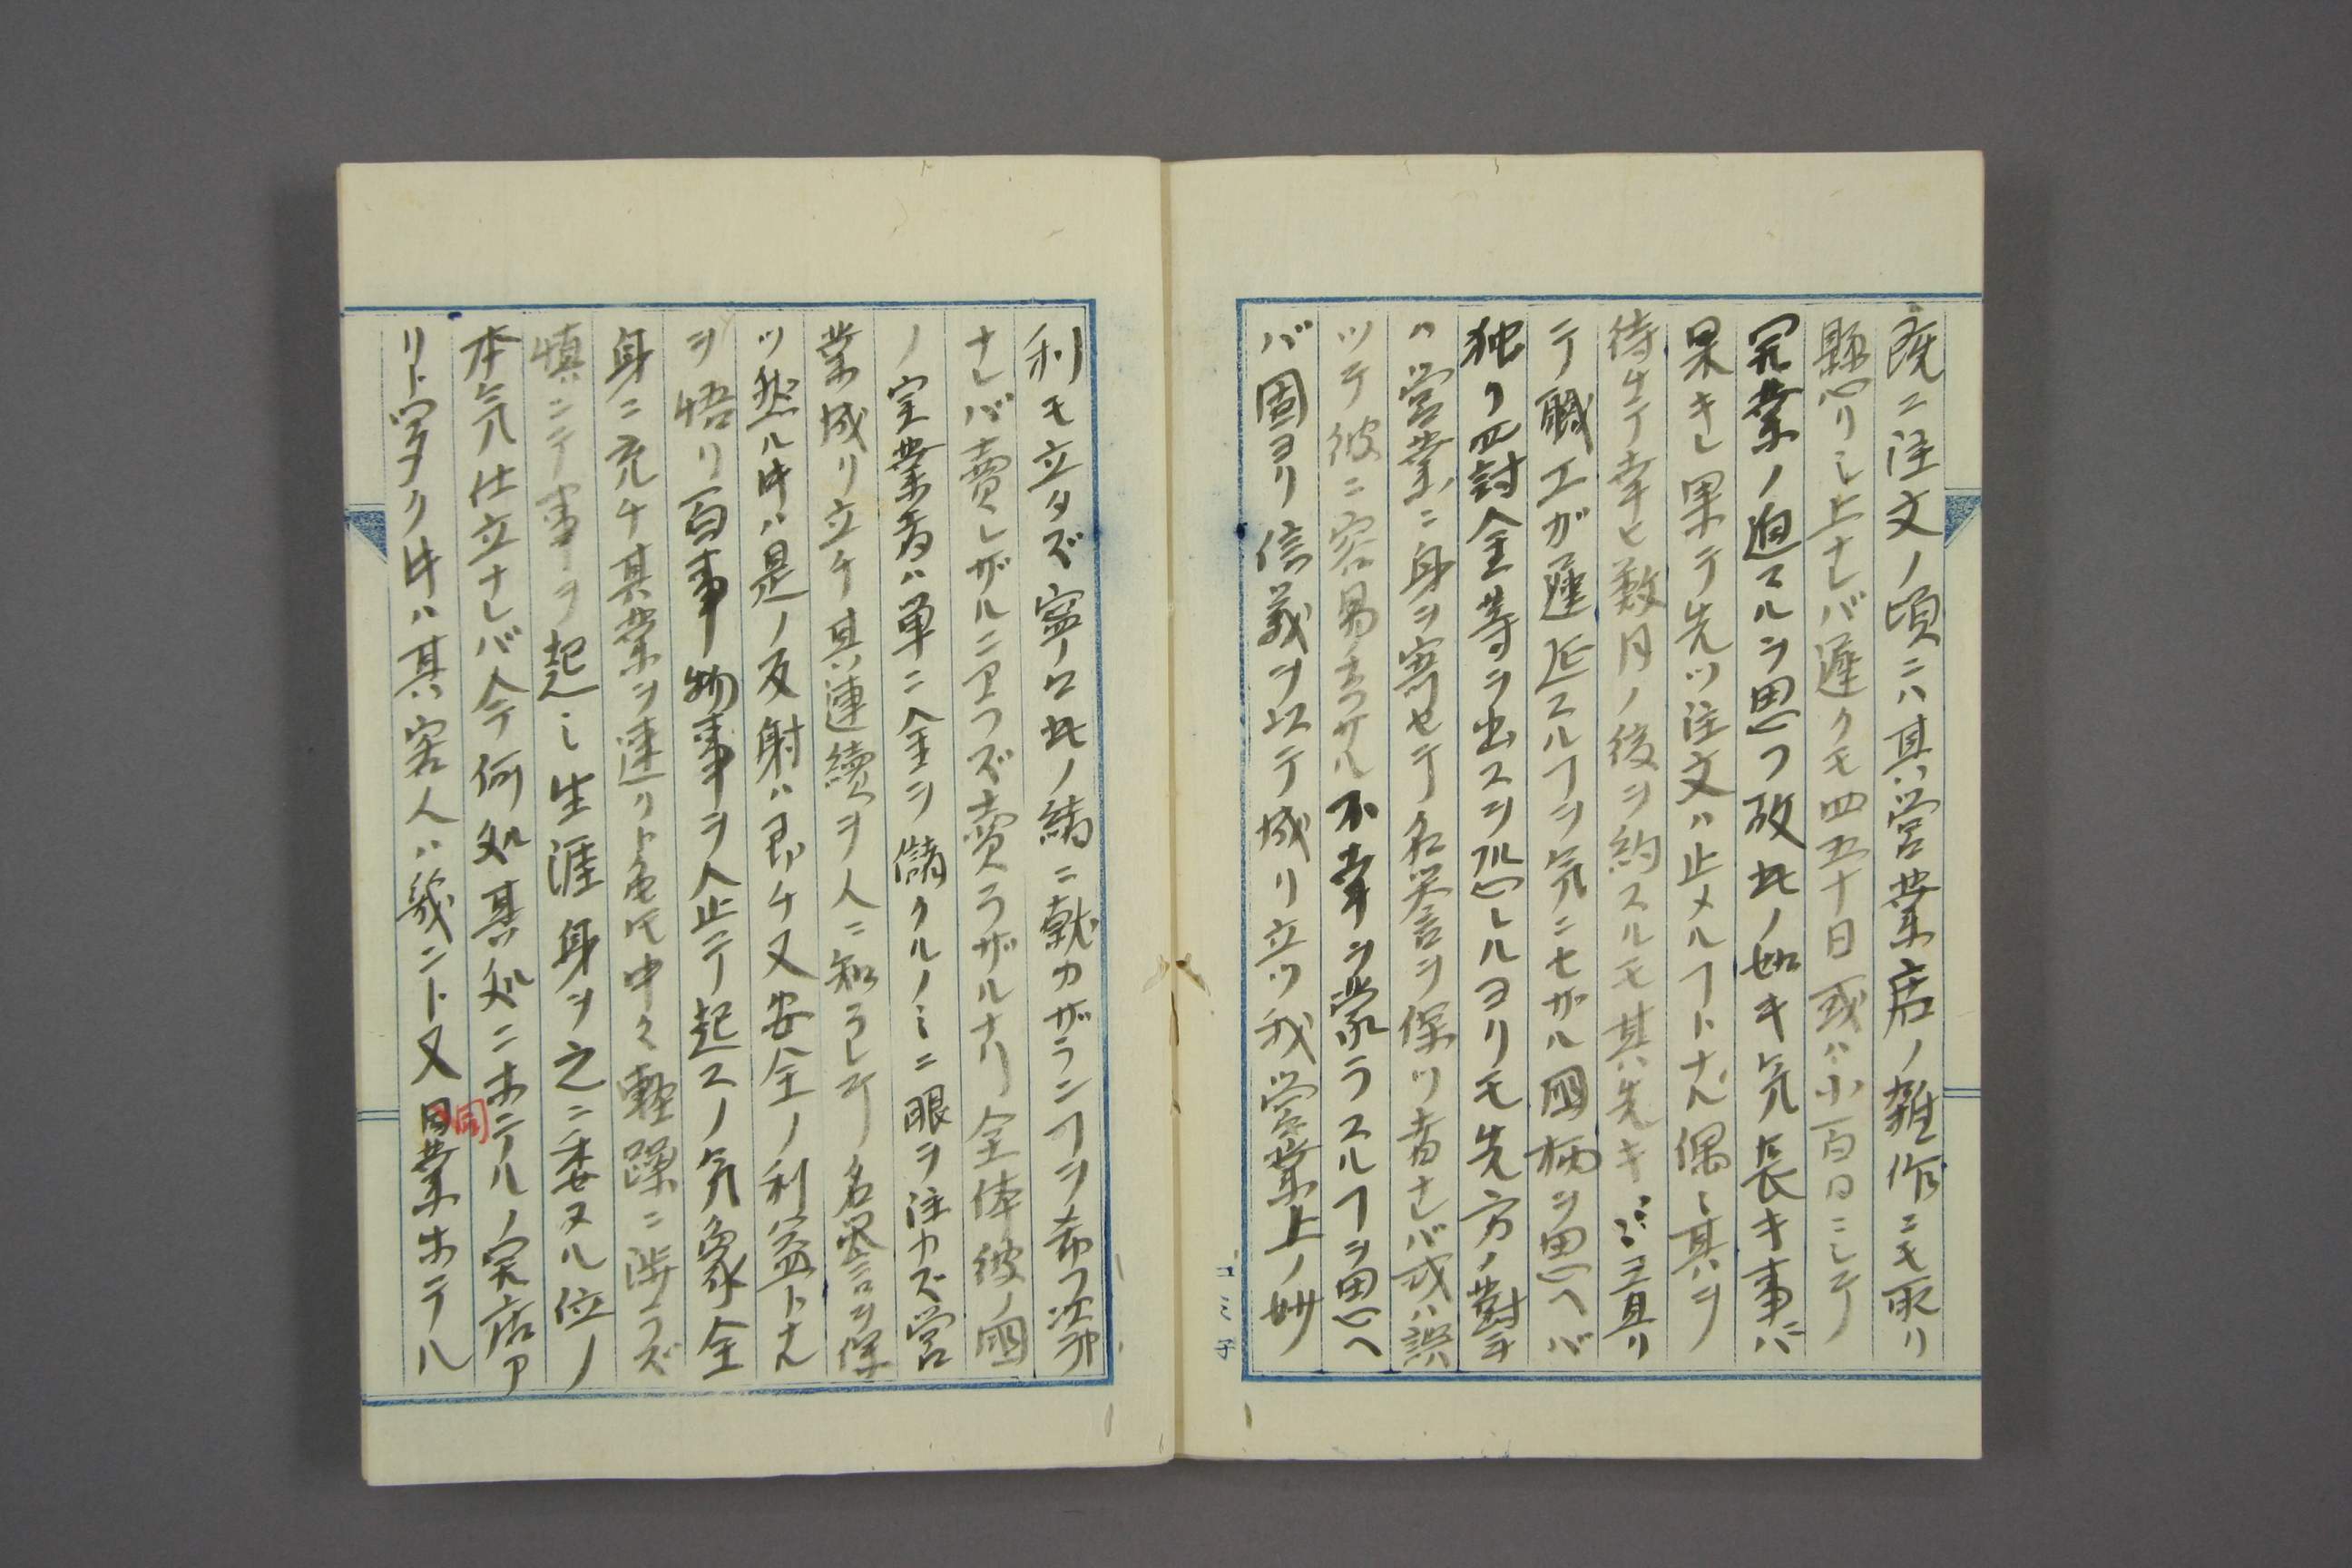 既ニ注文ノ頃ニハ其営業店ノ雑作ニモ取リ
懸リシ上ナレバ遅クモ四五十日或ハ小百日ニシテ
開業ノ廻マルヲ思フ故此ノ如キ気長キ事ニハ
果キレ果テ先ツ注文ハ止メルヿトナル偶〻其ヲ
待チテ幸ヒ数月ノ後ヲ約スルモ其先キバ三月リ
テ職工ガ遅延スルヿヲ気ニセザル国柄ヲ思ヘバ
独リ照討金等ヲ出スヲ恐レルヨリモ先方ノ對手
ハ営業ニ身ヲ寄セテ名誉ヲ保ツ者ナレバ或ハ誤
ツテ彼ニ容易ナラザル不幸ヲ蒙ラスルヿヲ思ヘ
バ固ヨリ信義ヲ以テ成リ立ツ我営業上ノ妙
利モ立タズ寧ロ此ノ緒ニ就カザランヿヲ希フ次第
ナレバ賣レザルニアラズ賣ラザルナリ全体彼ノ国
ノ実業者ハ単ニ金ヲ儲クルノミニ眼ヲ注カズ営
業成リ立チ其連續ヲ人ニ知ラレテ名誉ヲ保
ツ然ル時ハ是ノ反射ハ即チ又安全ノ利益トナル
ヲ悟リ百事物事ヲ企テ起スノ気象全
身ニ充チ其業ヲ連リト雖𪜈中々軽躁ニ渉ラズ
慎ニテ事ヲ起シ生涯身ヲ之ニ委ヌル位ノ
本気仕立ナレバ今何処其処ニホテルノ突店ア
リト聞ク時ハ其客人ハ幾ント又同業ホテル
同
ユミヂ